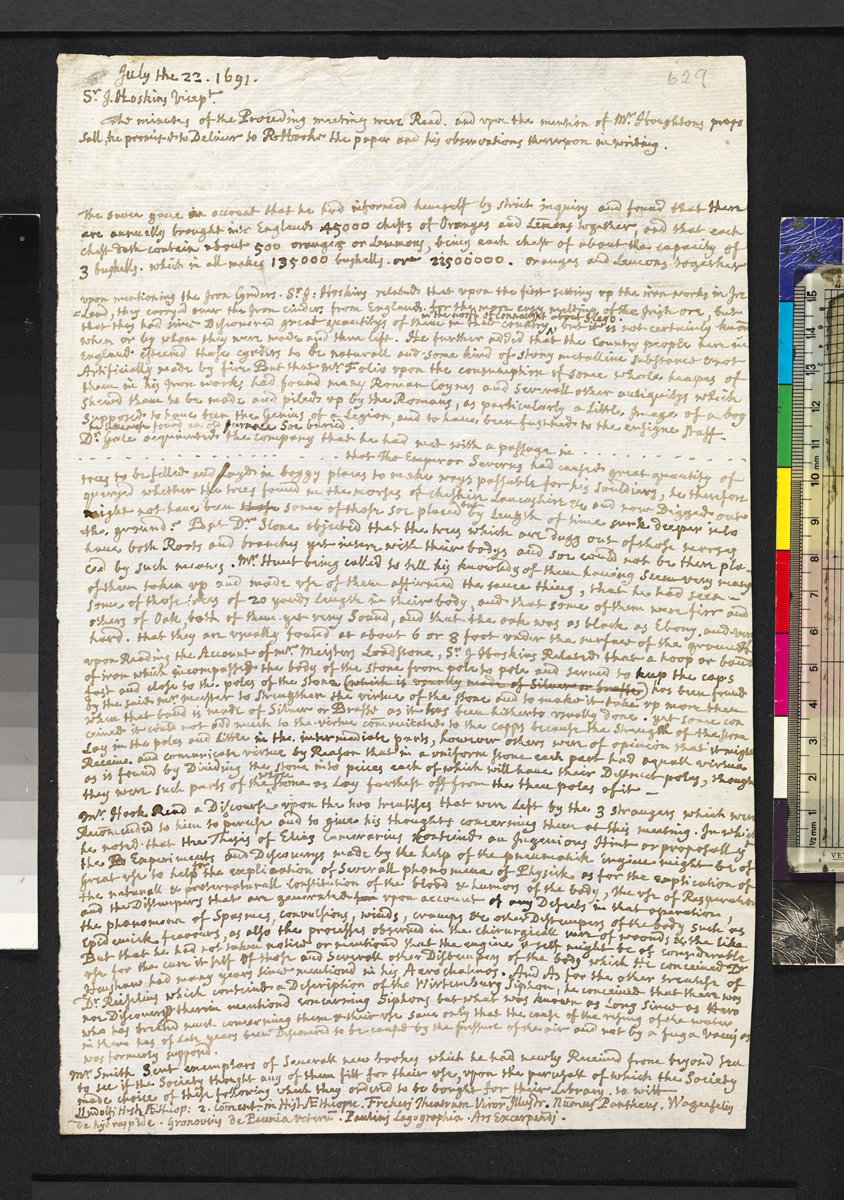 629
July the 22. 1691.
Sr. J. Hoskins Vicept.
The minutes of the Preceding meeting were Read. and upon the mention of Mr. Houghtons propo
sall, he promised to Deliver to RHooke the paper and his observations thereupon in writing.
The same gave an account that he had informed himself by strict inquiry and found that there
are annually brought into England 45000 chests of Oranges and Lemons together, and that each
chest doth contain about 500 oranges or Lemmons, being each chest of about the capacity of
3 bushells. which in all makes 135000 bushells. or 22500000. oranges and Lemons together
upon mentioning the Iron Cynders. Sr. J: Hoskins related that upon the first setting up the iron works in Ire
-land, they carryd over the Iron cinders from England, for the more easy melting of the Irish ore, but
in the north of Connaught about Sligo
that they had since Discovered great quantitys of them in that country, but it is not certainly known
when or by whom they were made and there left. He further added that the Country people here in
England esteemd those cynders to be naturall and some kind of stony metalline substance & not
Artificially made by fire But that Mr. Folio upon the consumption of some whole heapes of
them in his Iron works had found many Roman Coynes and Severall other antiquitys which
shewd them to be made and piled up by the Romans, as particularly a little Image of a boy
Supposed to have been the Genius of a Legion, and to have been fastned to the ensigne staff.
he likewise found an old furnace soe buried.
Dr. Gale acquainted the company that he had met with a passage in
that the Emperor Severus had caused great quantity of
trees to be felled and Layd in boggy places to make ways passable for his Souldiers, he therefore
queryed whether the trees found in the morses of Cheshire Lancashire &c and now Digged out
might not have been some of those soe placed by Length of time sunk deeper into
the ground? But Dr. Slone objected that the trees which are dugg out of those morses
have both Roots and branches yet intire with their bodys and soe could not be there pla-
ced by such means. Mr. Hunt being called to tell his knowledg of them having Seen very many
of them taken up and made use of them affirmed the same thing, that he had seen
some of those trees of 20 yards Length in their body, and that some of them were firr and
others of Oak both of them yet very Sound, and that the oak was as black as Ebony and very
hard. that they are usually found at about 6 or 8 foot under the surface of the ground
upon Reading the Account of Mr. Meisters Loadstone, Sr. J Hoskins Related that a hoop or band
of iron which incompassed the body of the stone from pole to pole and served to keep the caps
fast and close to the poles of the stone (which is usually made of Silver or brasse) has been found
by the said Mr. Meister to strengthen the virtue of the stone and to make it take up more then
when that band is made of Silver or Brasse as it has been hitherto usually done. yet some con
ceived it could not add much to the virtue comunicated to the capps because the strength of the stone
Lay in the poles and little in the intermediate parts, however others were of opinion that it might
Receive and comunicate virtue by Reason that in a uniform stone each part had equall virtue
as is found by Dividing the stone into pieces each of which will have their Distinct poles, though
whole
they were such parts of the stone as Lay farthest off from the then poles of it -
Mr. Hook Read a Discourse upon the two treatises that were Left by the 3 strangers which were
Recomended to him to peruse and to give his thoughts concerning them at this meeting. In which
he noted that the Thesis of Elias Camerarius containd an Ingenious Hint or proposall yt
the Experiments and Discoverys made by the help of the pneumatik engine might be of
great use to help the explication of Severall phenomena of Physick as for the explication of
the naturall & preternaturall Constitution of the blood & humors of the body, the use of Respiration
and the Distempers that are generated upon account of any Defects in that operation,
the phenomena of Spasmes, convulsions, winds, cramps & other Distempers of the body such as
Epidemick feavours, as also the processes observed in the chirurgicall cure of wounds & the like
But that he had not taken notice or mentiond that the engine it self might be of considerable
use for the cure it self of those and Severall other Distempers of the body which He conceived Dr
Henshaw had many years since mentiond in his Aerochalinos. And As for the other treatise of
Dr. Reiselius which containd a Description of the Wirtemburg Siphon, he conceived that there was
noe Discovery therein mentiond concerning Siphons but what was known as Long Since as Hero
who has treated much concerning them & their use save only that the cause of the rising of the water
in them has of Late years been Discoverd to be caused by the pressure of the air and not by a fuga vacui as
was formerly supposed.
Mr. Smith Sent exemplars of Severall new bookes which he had newly Receivd from beyond sea
to see if the Society thought any of them fitt for their use, upon the perusall of which the Society
made choice of these following which they ordered to be bought for their Library. to witt
Ludolfi Hist. Æthiop: 2. Coment. in Hist. Æthiopic. Freheri Theatrum Viror. Illustr. Numus Pantheus. Wagenselij
de hydraspide. Gronovius de Pecunia veterum. Paulini Lagographia. Ars Excerpendi.